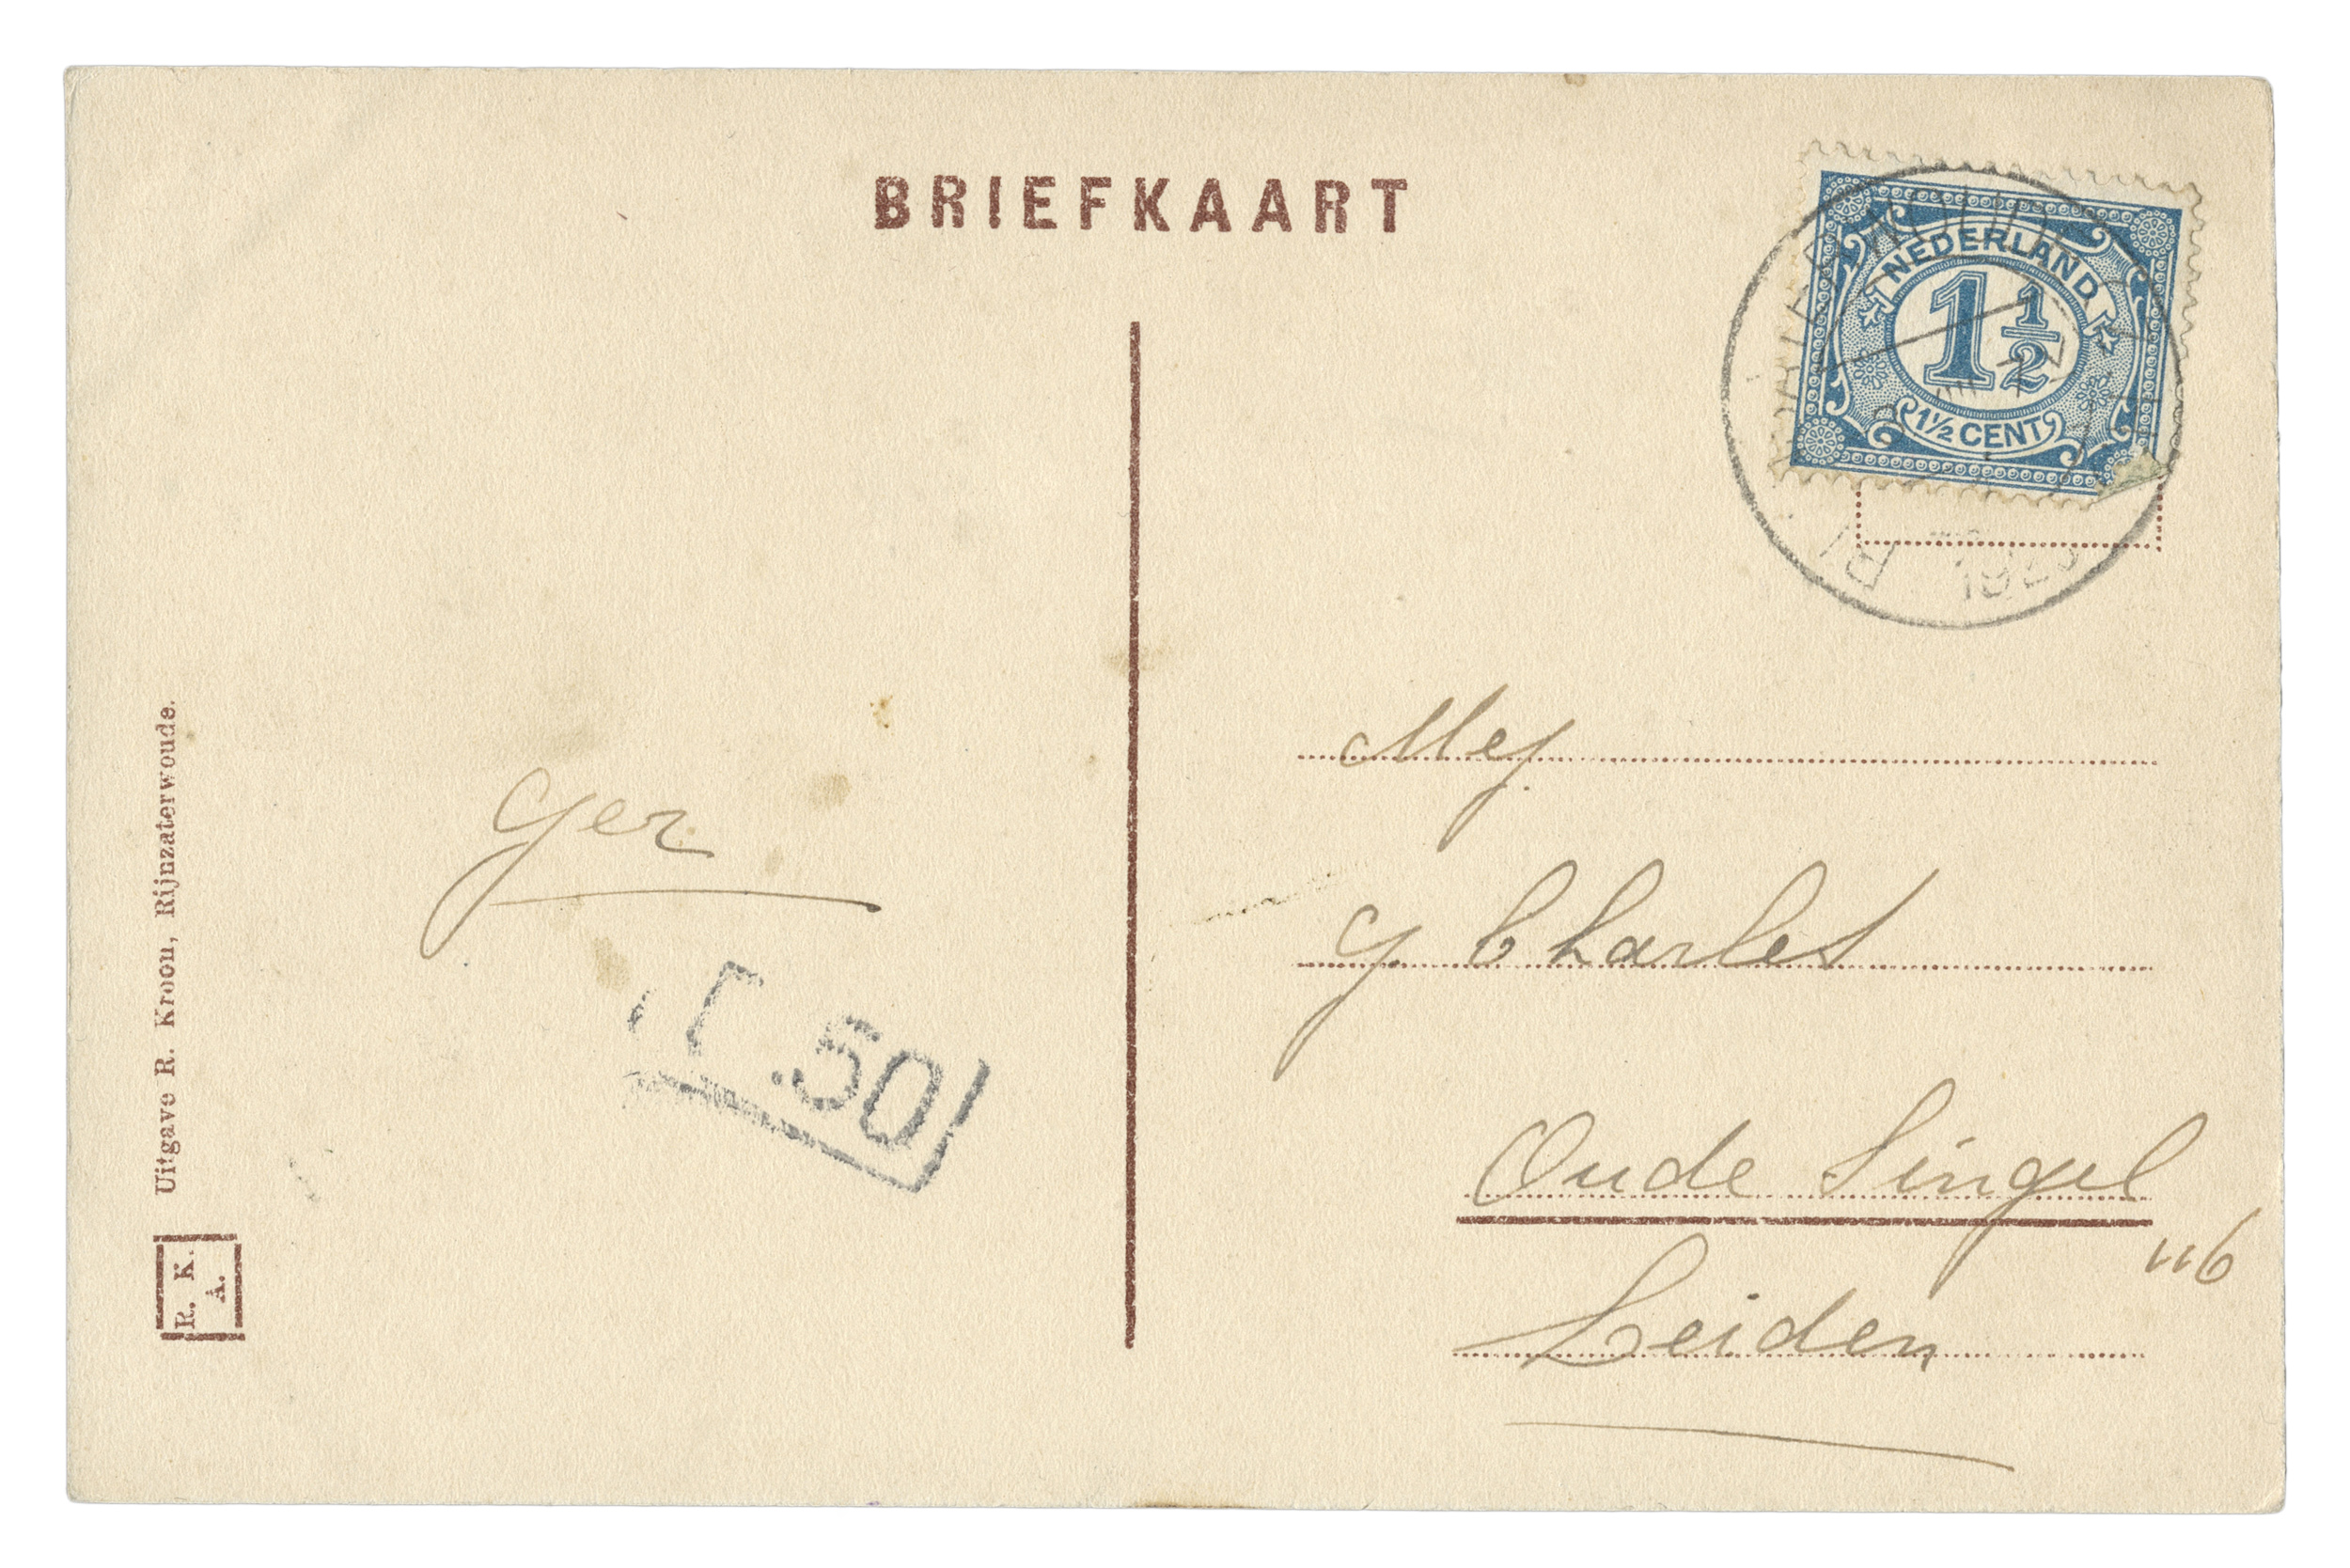 BRIEFKAART
NEDERLAND
1 1/2
1½ CENT
Uitgave R. Kroon, Rijnzaterwoude.
R. K.
A.
Ger
T .50
Mej
G. Charles
Oude Singel
116
Leiden